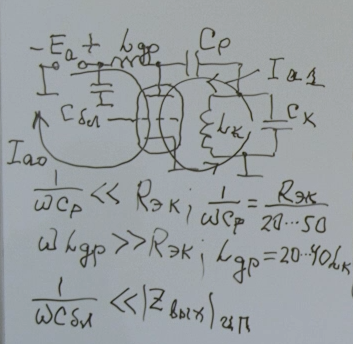 - Eа + Lдр Cр
Iа1
Cбл Lк Cк
Iао
1/ωCр << Rэк ; 1/ωCр = Rэк/20...50
ωLдр >> Rэк ; Lдр = 20..40Lк
1/ωCбл << |Zвых|ип